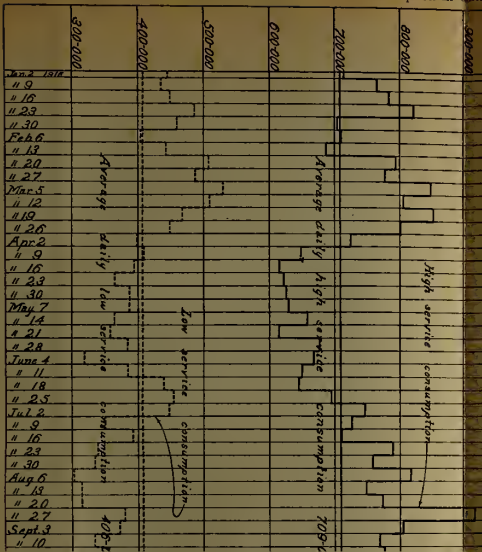 300-000
400-000
500-000
600-000
700-000
800-000
900-000
Jan. 2 1918
" 9
" 16
" 23
" 30
Feb 6
" 13
" 20
" 27
Mar. 5
" 12
" 19
" 26
Apr 2
" 9
" 16
" 23
" 30
May 7
" 14
" 21
" 28
June 4
" 11
" 18
" 25
Jul. 2
" 9
" 16
" 23
" 30
Aug 6
" 13
" 20
" 27
Sept. 3
" 10
Average daily low service consumption
Low service consumption
Average daily high service consumption 709-
High service consumption